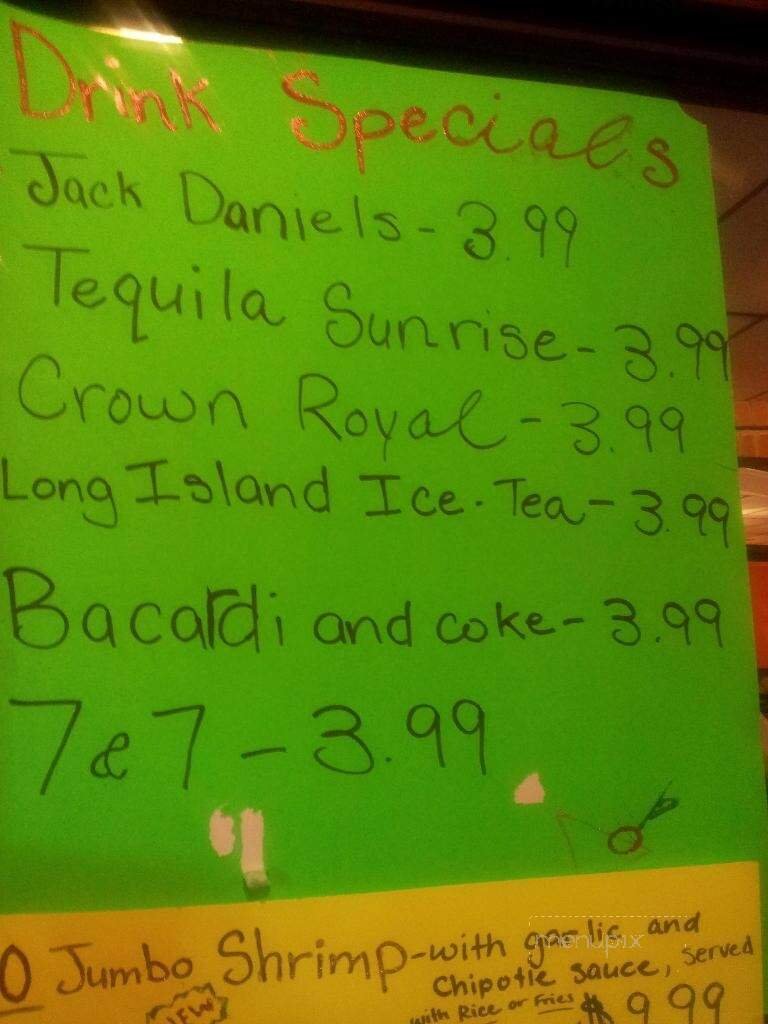 Drink Specials
Jack Daniels - 3.99
Tequila Sunrise - 3.99
Crown Royal - 3.99
Long Island Ice. Tea - 3.99
Bacardi and coke - 3.99
7 & 7 - 3.99
0 Jumbo Shrimp - with garlic and
Chipotle sauce, served
with Rice or Fries $9.99
menupix